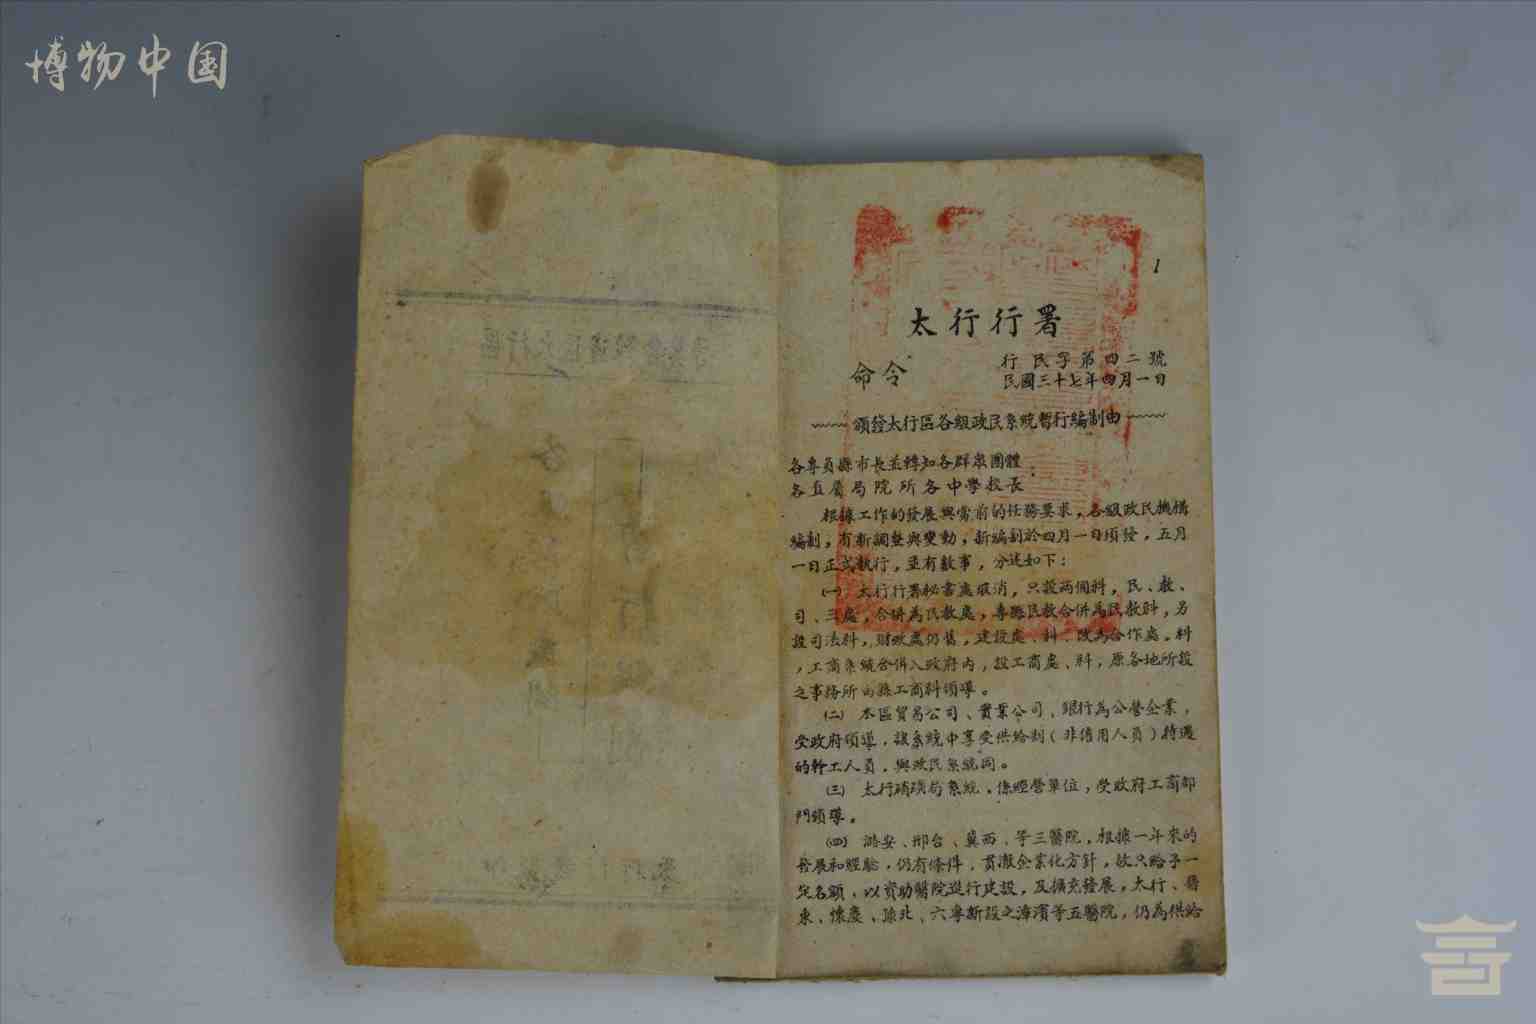 博物中国
1
太行行署
命令
行民字第四二號
民國三十七年四月一日
頒發太行區各級政民系統暫行編制由
各專員縣市長並轉知各群眾團體
各直屬局院所各中學校長
根據工作的發展與當前的任務要求，各級政民機構
編制，有新調整與變動，新編制於四月一日頒發，五月
一日正式執行，並有數事，分述如下：
㈠ 太行行署秘書處取消，只設兩個科，民、教、
司、三處，合併為民教處，專縣民教合併為民教科，另
設司法科，財政處仍舊，建設處、科、改為合作處。科
，工商系統合併入政府內，設工商處、科，原各地所設
之事務所由縣工商科領導。
㈡ 本區貿易公司、實業公司、銀行為公營企業，
受政府領導，該系統中享受供給制（非僱用人員）待遇
的幹工人員，與政民系統同。
㈢ 太行硝磺局系統，係經營單位，受政府工商部
門領導。
㈣ 潞安、邢台、冀西、等三醫院，根據一年來的
發展和經驗，仍有條件，貫澈企業化方針，故只給予一
定名額，以資助醫院進行建設，及擴充發展，太行、晉
東、懷慶、豫北、六專新設之漳濱等五醫院，仍為供給